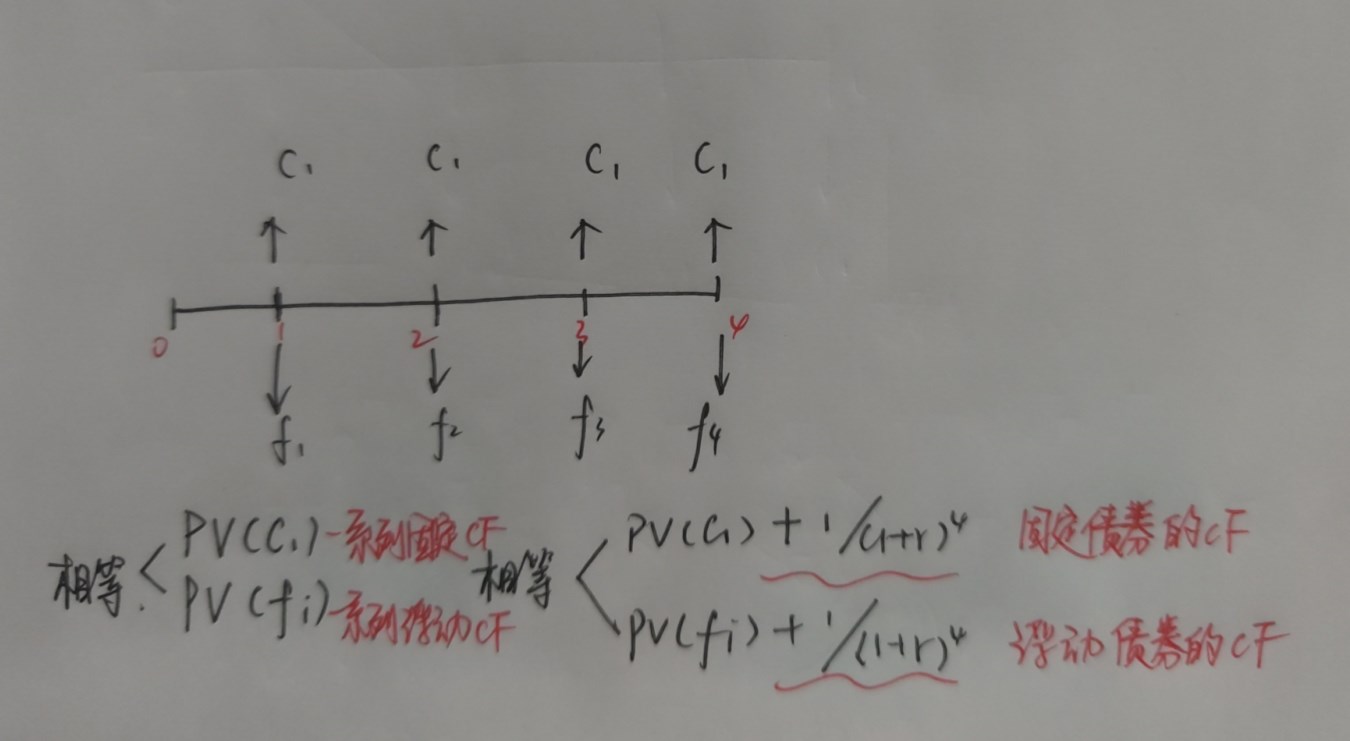 C₁ C₁ C₁ C₁
0 1 2 3 4
f₁ f₂ f₃ f₄
相等 < PV(C₁) 一系列固定CF
PV(fi) 一系列浮动CF
相等 < PV(C₁) + 1/(1+r)⁴ 固定债券的CF
PV(fi) + 1/(1+r)⁴ 浮动债券的CF